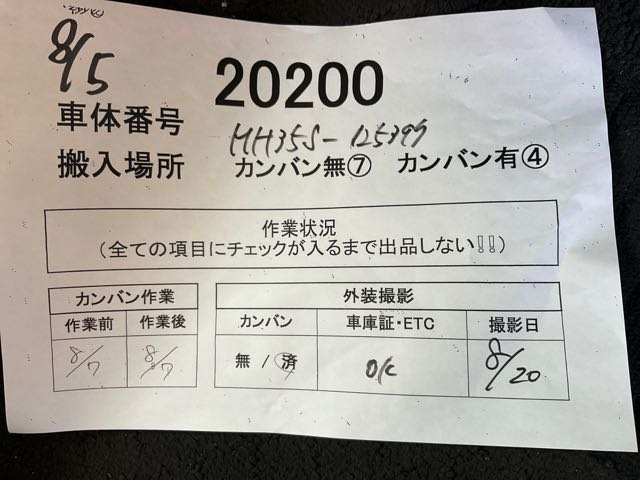 8/5
20200
車体番号
MH35S-125399
搬入場所
カンバン無⑦ カンバン有④
作業状況
(全ての項目にチェックが入るまで出品しない!!)
カンバン作業
作業前 作業後
8/7 8/7
外装撮影
カンバン 車庫証・ETC 撮影日
無 / 済 O/C 8/20